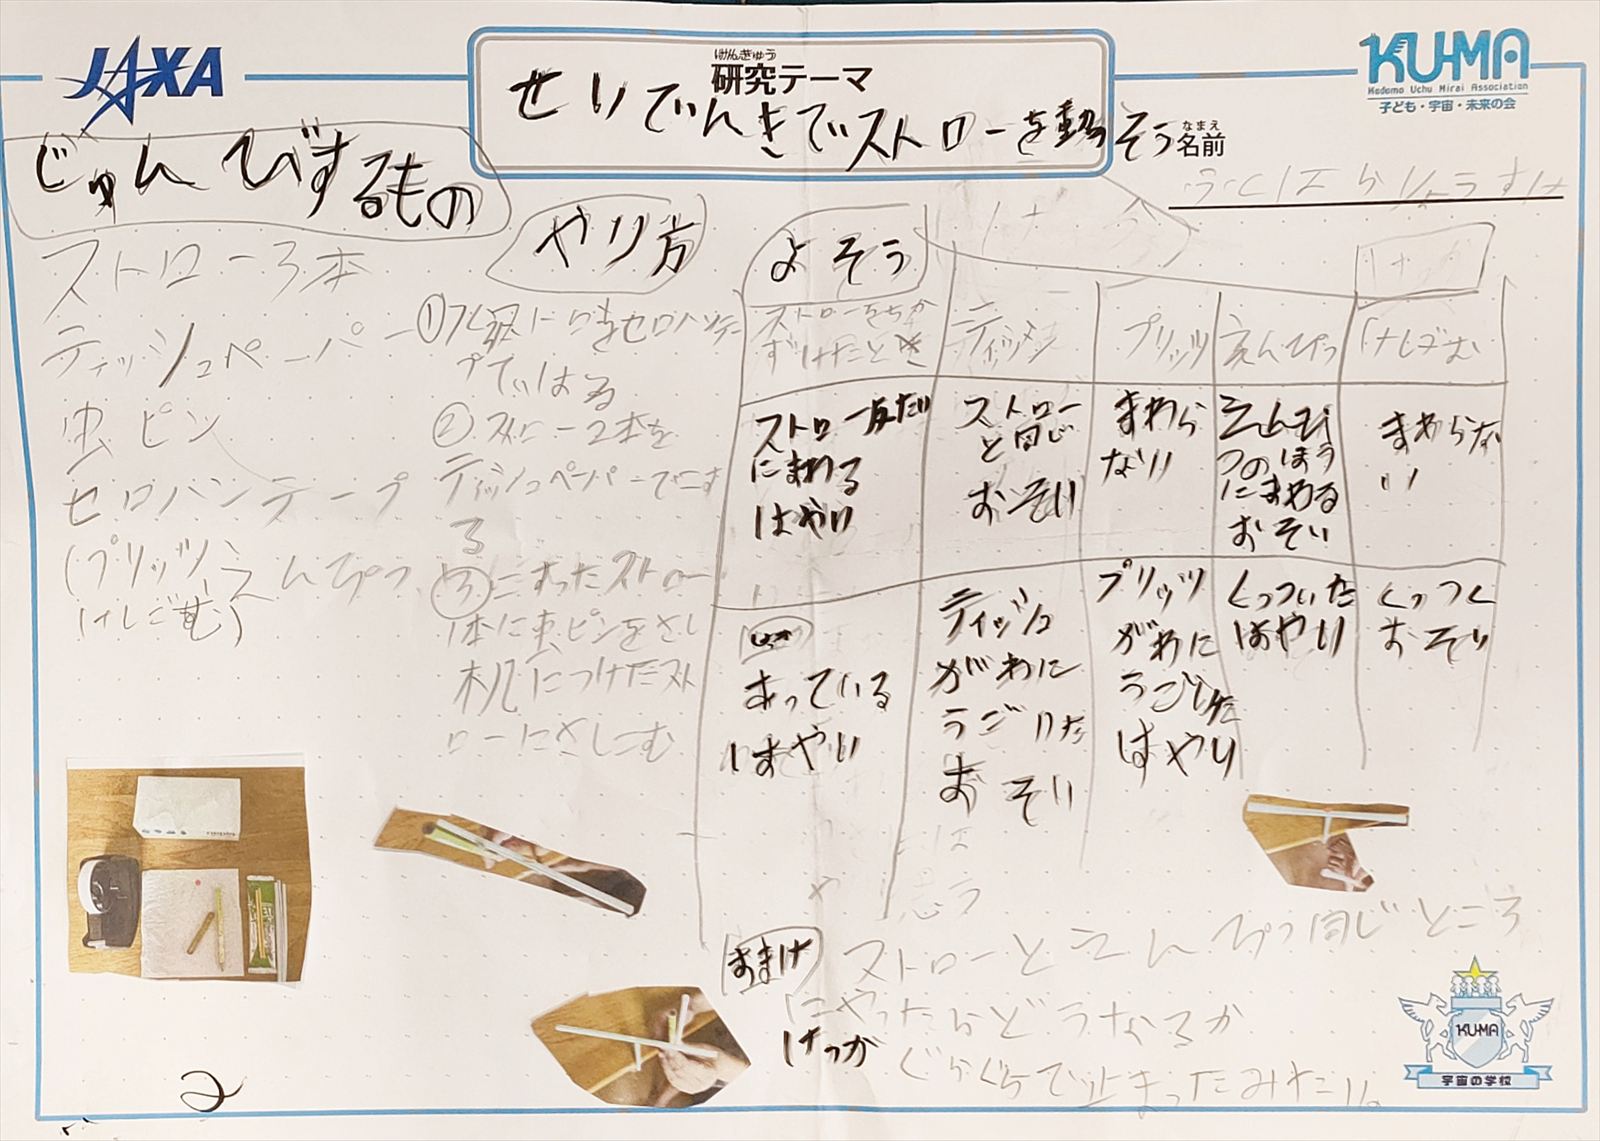 JAXA
けんきゅう
研究テーマ
せいでんきでストローを動かそう
KU-MA
Kodomo Uchu Mirai Association
子ども・宇宙・未来の会
なまえ
名前
じゅんびするもの
ストロー3本
ティッシュペーパー
虫ピン
セロハンテープ
(プリッツ、えんぴつ
けしごむ)
やり方
①
セロハンテー
プではる
② ストロー2本を
ティッシュペーパーでこす
る
③にこすったストロー
1本に虫ピンをさし
机につけたスト
ローにさしこむ
よそう
ストローをちか
ずけたとき
ティッシュ
プリッツ
えんぴつ
けしごむ
ストロー反たい
にまわる
はやい
ストロー
と同じ
おそい
まわら
ない
えんぴ
つのほう
にまわる
おそい
まわらな
い
あっている
はやい
ティッシュ
がわに
うごいた
おそい
プリッツ
がわに
うごいた
はやい
くっついた
はやい
くっつく
おそい
おまけ
ストローとえんぴつ同じところ
にやったらどうなるか
けっか
ぐらぐらで止まったみたい。
KU-MA
宇宙の学校
2